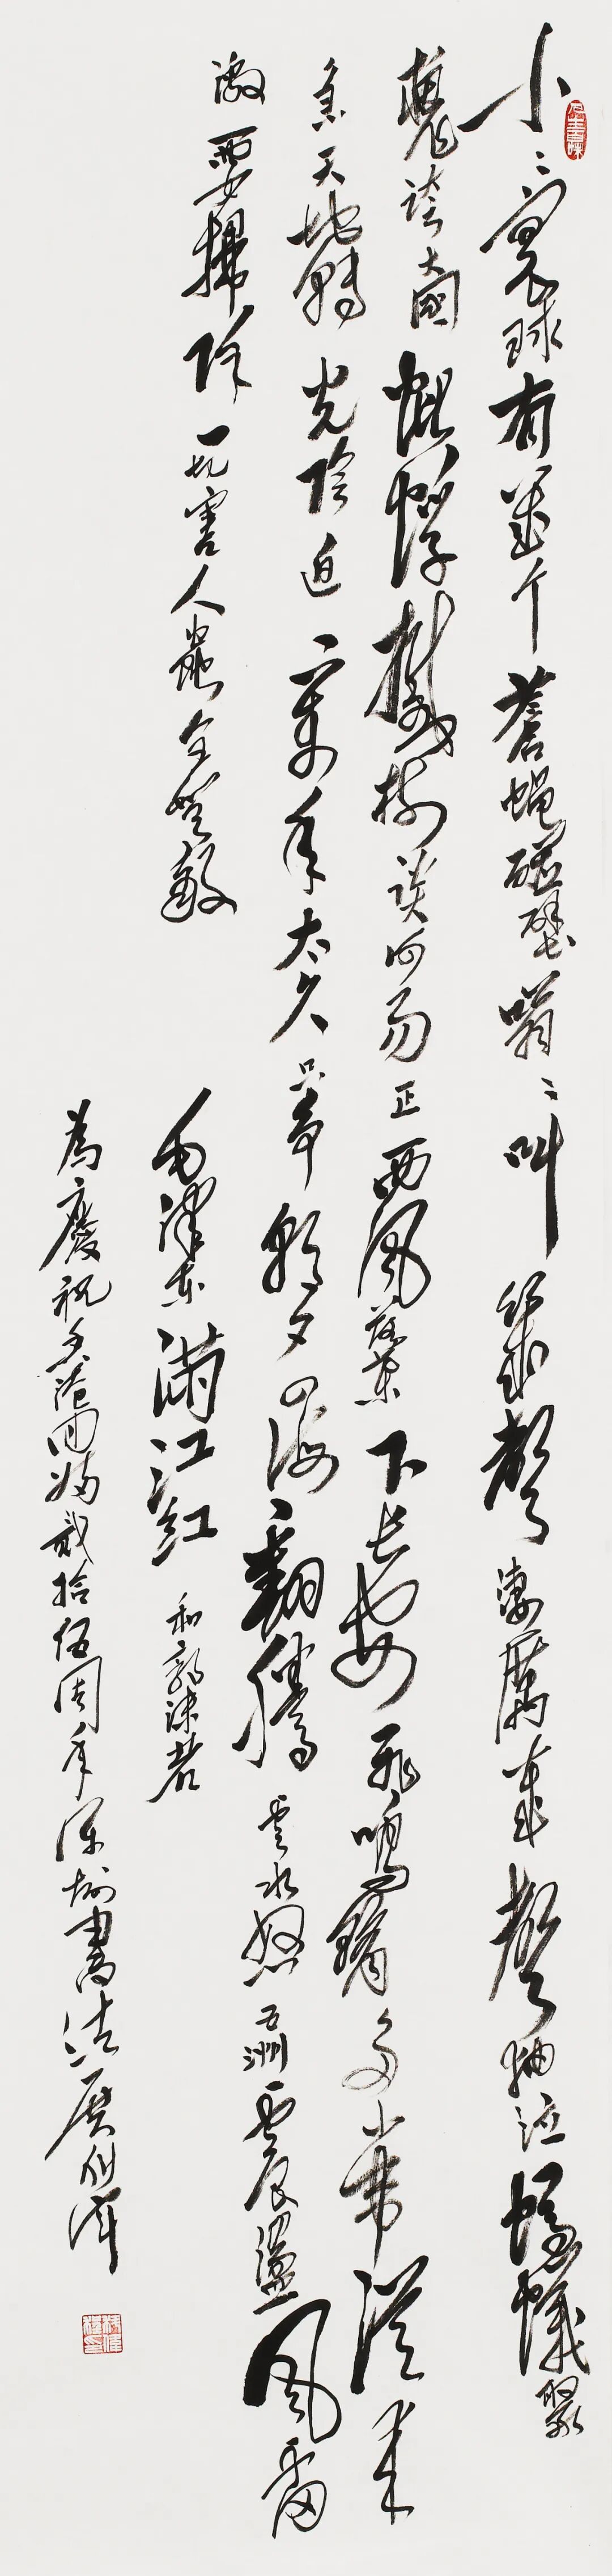 小〻寰球有幾个蒼蠅碰壁嗡〻叫幾聲淒厲幾聲抽泣螞蟻緣
槐誇大國蚍蜉撼樹談何易正西風落葉下長安飛鳴鏑多少事從來
急天地轉光陰迫一萬年太久只爭朝夕四海翻騰雲水怒五洲震盪風雷
激要掃除一切害人蟲全無敵
毛澤東滿江紅和郭沫若
為慶祝香港回歸貳拾伍周年深圳書法展